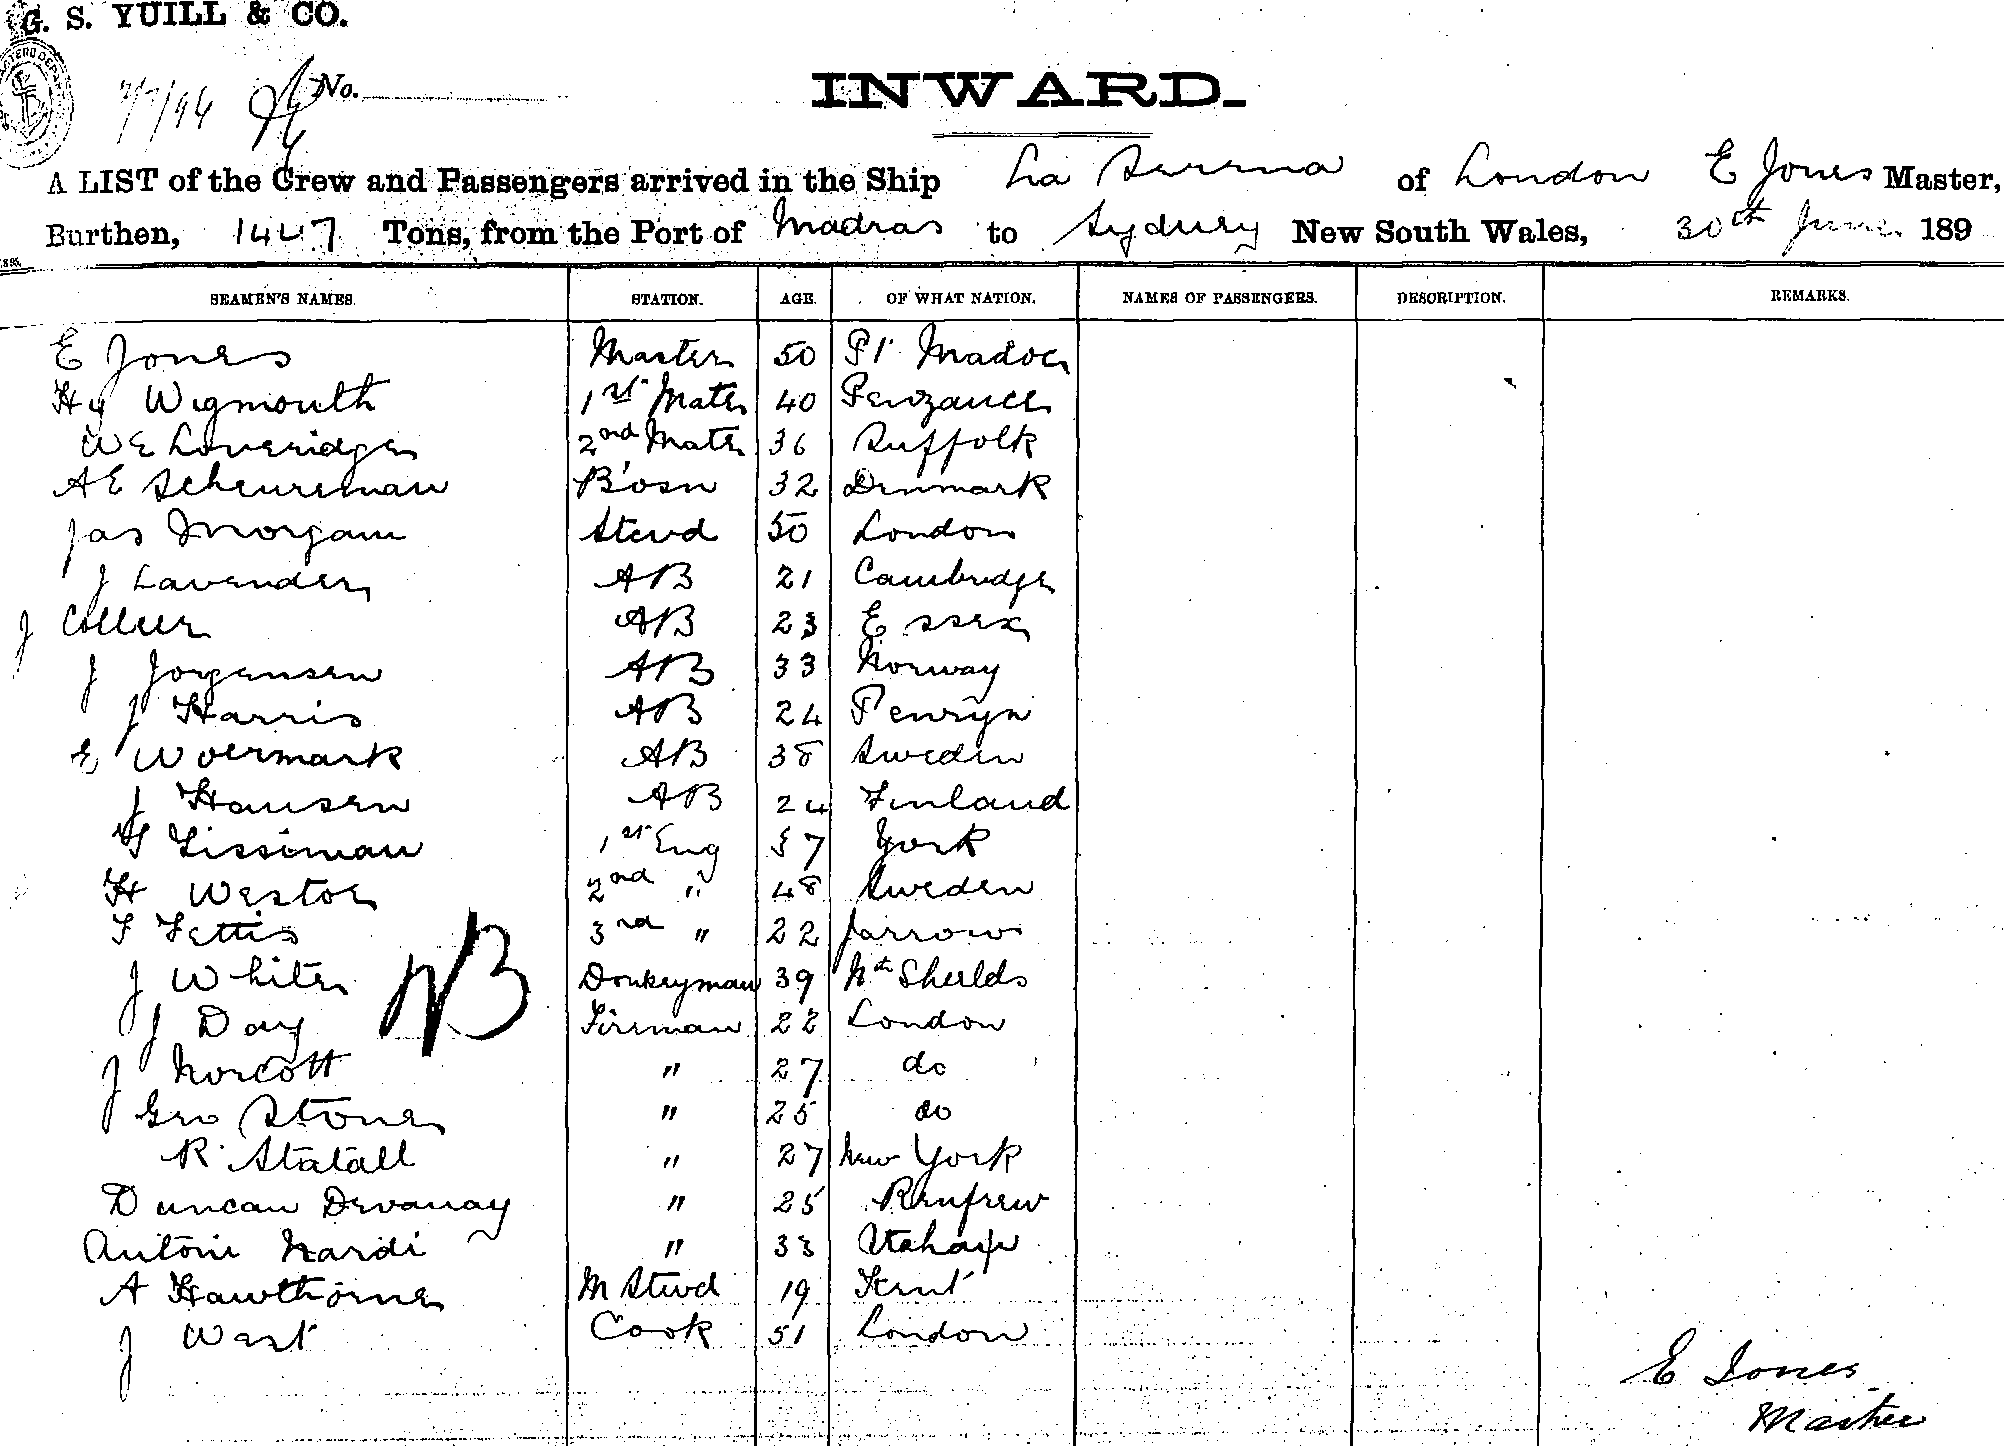 G. S. YUILL & CO.
7/7/96 No.
INWARD.
A LIST of the Crew and Passengers arrived in the Ship La Serena of London E Jones Master,
Burthen, 1447 Tons, from the Port of Madras to Sydney New South Wales, 30th June 189
SEAMEN'S NAMES. STATION. AGE. OF WHAT NATION. NAMES OF PASSENGERS. DESCRIPTION. REMARKS.
E Jones Master 50 Pt Madoc
Hy Wigmouth 1st Mate 40 Penzance
W E Loveridge 2nd Mate 36 Suffolk
A E Scheureman B'osn 32 Denmark
Jas Morgan Stewd 50 London
J Lavender AB 21 Cambridge
J Collier AB 23 Essex
J Jorgensen AB 33 Norway
J Harris AB 24 Penryn
E Woermark AB 38 Sweden
J Hansen AB 24 Finland
Lissiman 1st Eng 37 York
H Westoe 2nd " 48 Sweden
F Fettis 3rd " 22 Jarrow
J White Donkeyman 39 Nth Sheilds
NB
J Day Fireman 22 London
J Norcott " 27 do
Geo Stone " 25 do
R Statall " 27 New York
Duncan Devanay " 25 Renfrew
Antoni Nardi " 33
A Hawthorne M Stewd 19 Kent
J West Cook 51 London
E Jones
Master